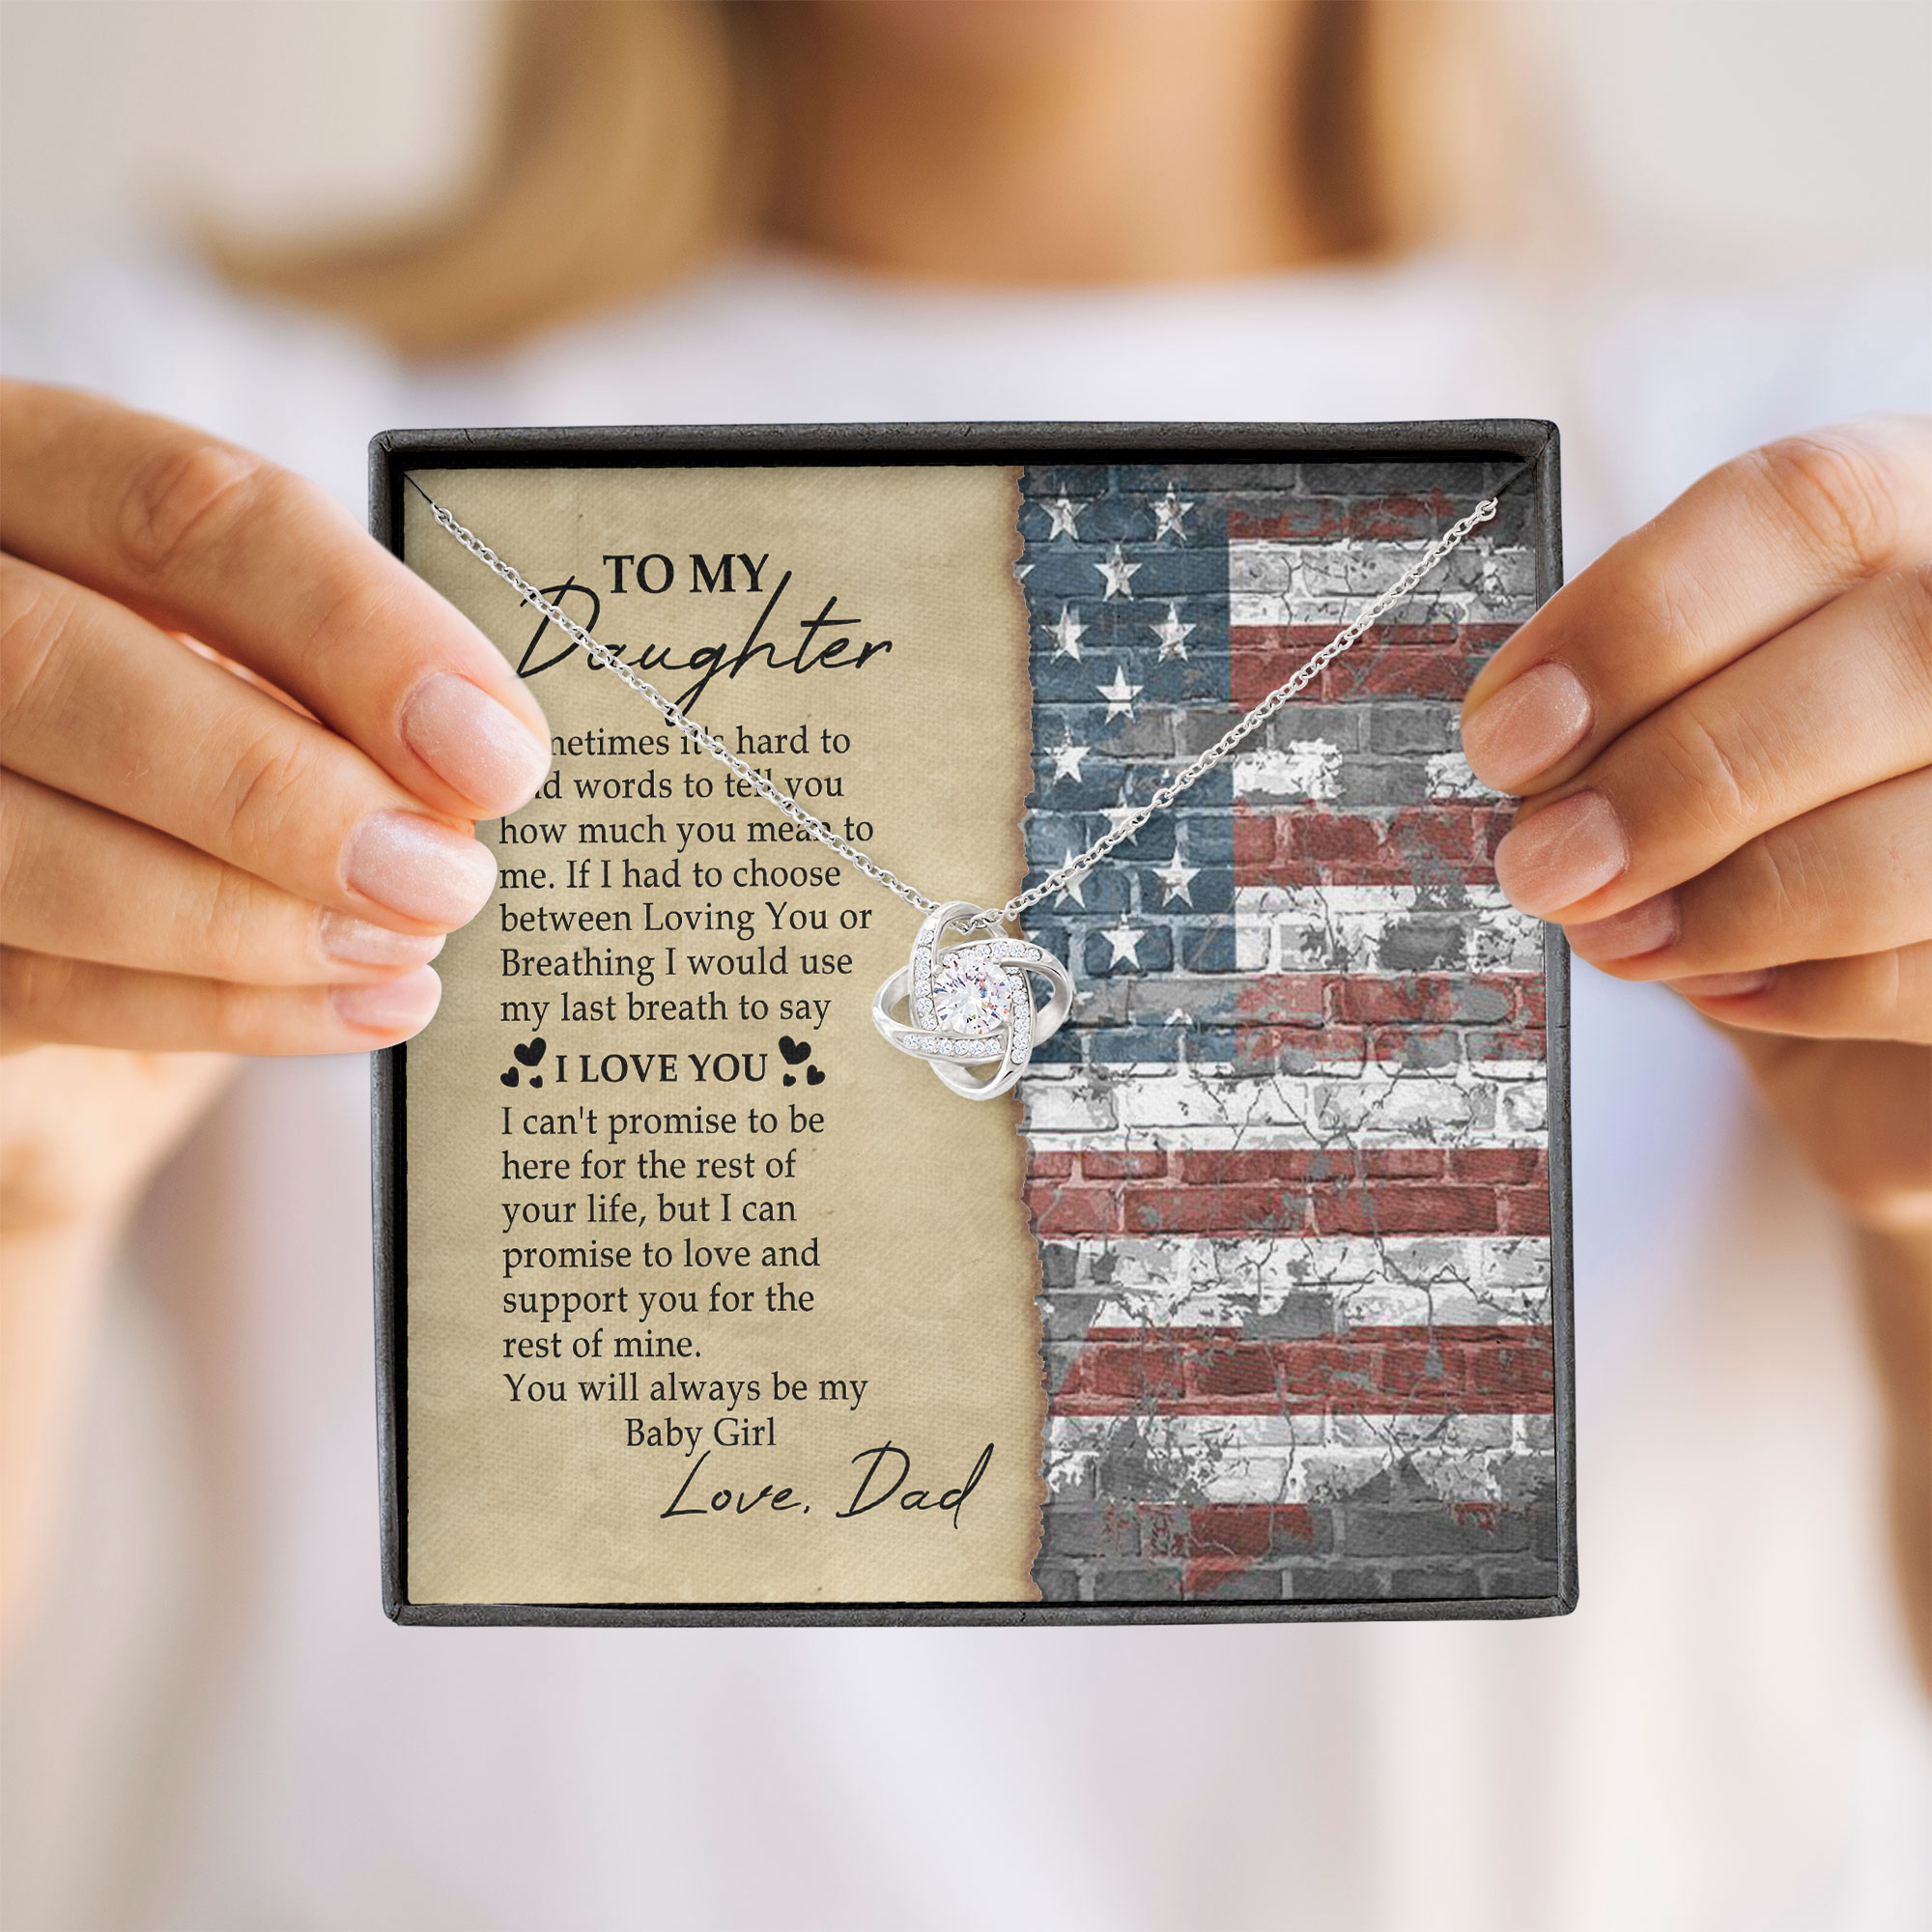 TO MY
Daughter
it's hard to
words to tell you
how much you mean to
me. If I had to choose
between Loving You or
Breathing I would use
my last breath to say
I LOVE YOU
I can't promise to be
here for the rest of
your life, but I can
promise to love and
support you for the
rest of mine.
You will always be my
Baby Girl
Love, Dad